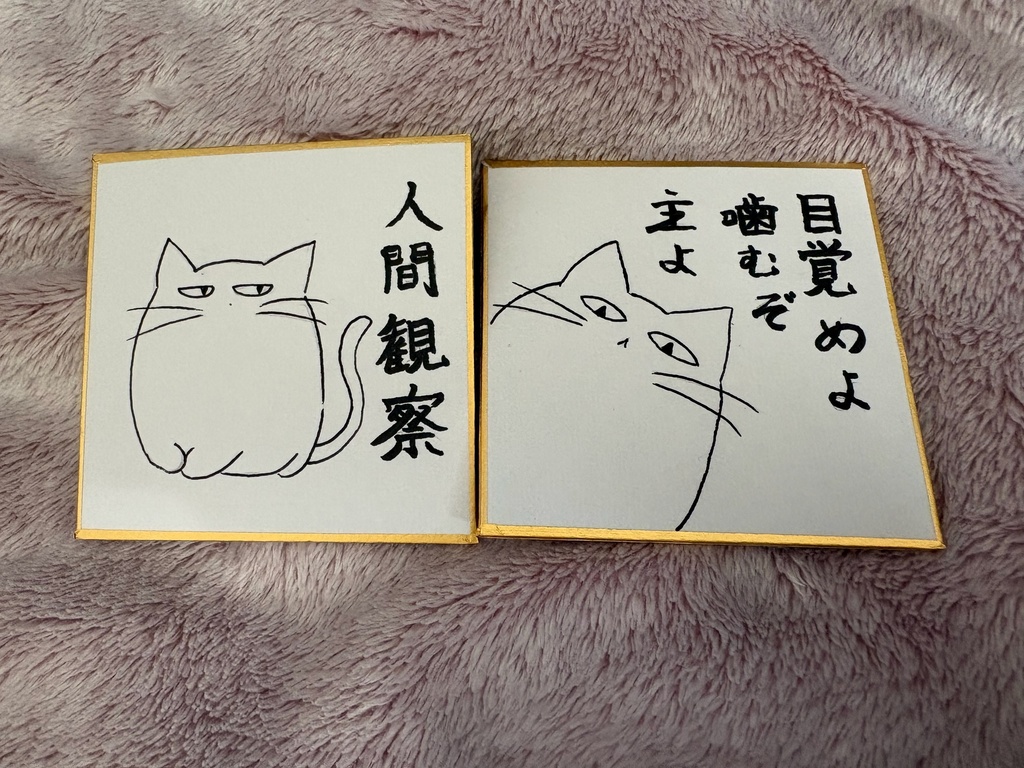 人間観察
目覚めよ
噛むぞ
主よ